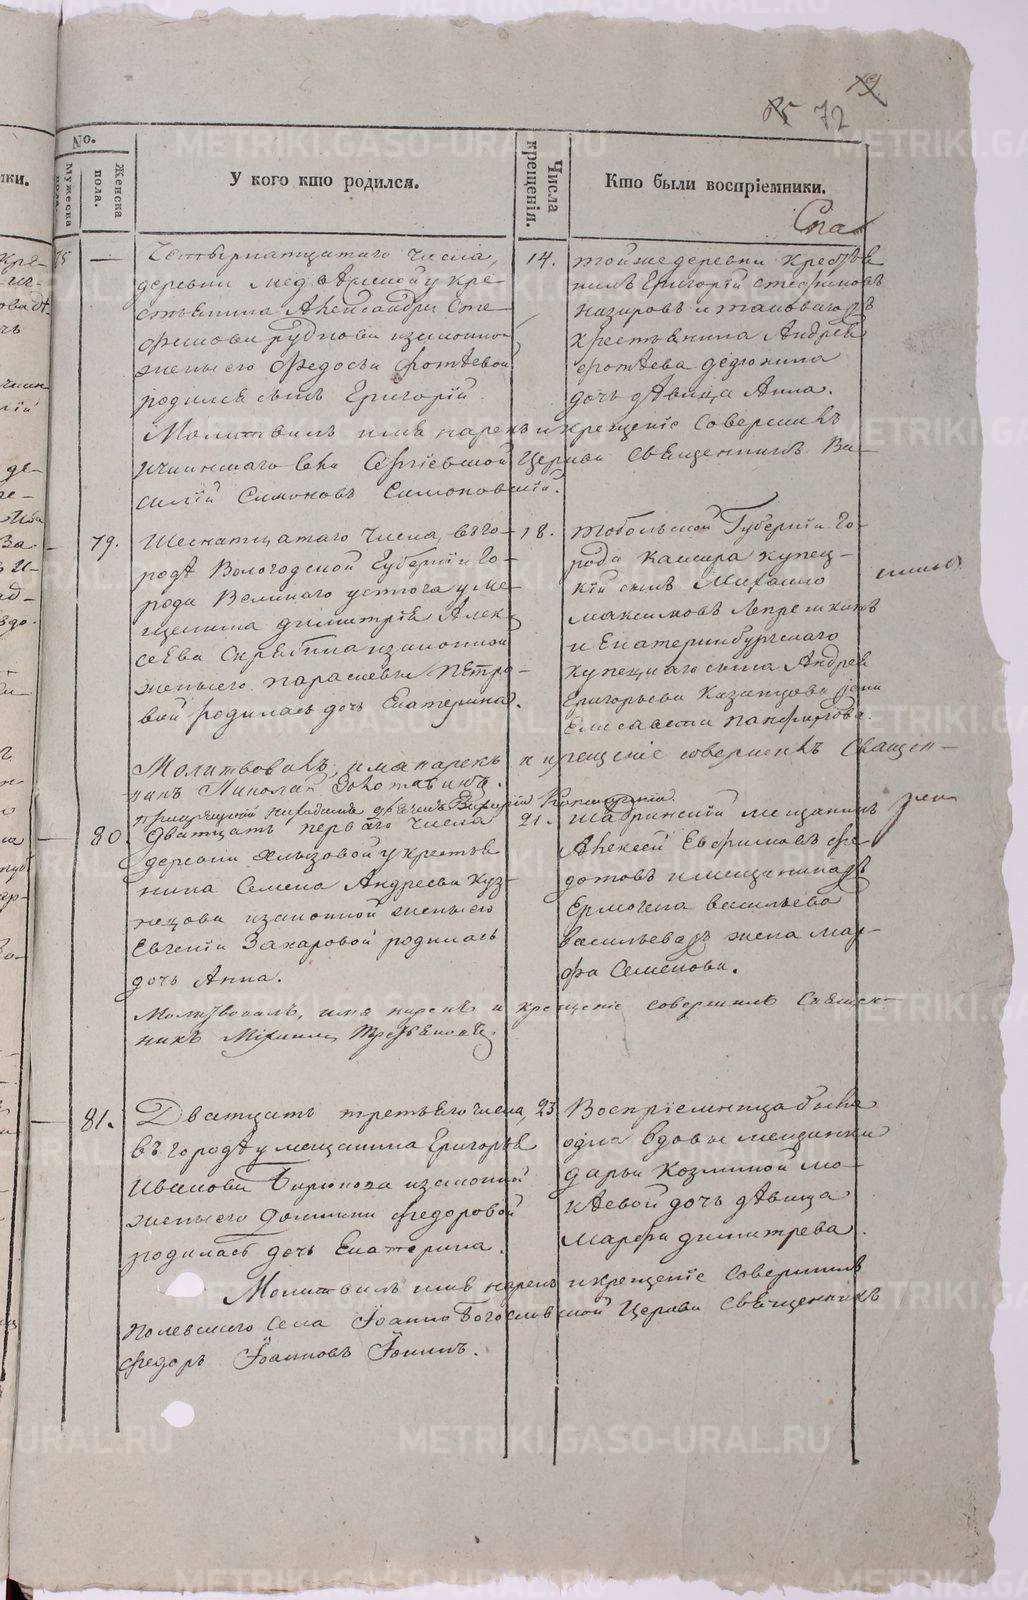 72
No.
Мужеска пола.
Женска пола.
У кого кто родился.
Числа крещенія.
Кто были воспріемники.
Спа
75 — Четвернатцатаго числа,
деревни у кре-
стьянина Александра Сте
фанова Рудкова изаконной
жены его Федосьи Фотѣевой
родился сынъ Григорій
14. тойже деревни крестья
нинъ Григорій Стефановъ
Назаровъ и таковагожъ
крестьянина Андрея
Фотѣева Дедюхина
дочь дѣвица Анна.
Молитвилъ имя нарекъ и крещеніе совершилъ
села Сергіевской Церкви Священникъ Ва-
силій Симоновъ Симоновскій.
79. Шеснатцатаго числа, въ го-
родѣ Вологодской Губерніи го-
рода Великаго устюга у ме-
щанина Димитрія Алек
сеева Скрябина изаконной
жены его Парасковьи Петро-
вой родилась дочь Екатерина.
18. Тобольской Губерніи го-
рода Каинска купец-
кій сынъ Михайло
Максимовъ
и Екатеринбургскаго
купецкаго сына Андрея
Григорьева Казанцова жена
Елисавета Панфилова.
Молитвовалъ, имя нарекъ и крещеніе совершилъ Священ-
никъ Николай
80. Дватцать перваго числа
деревни у крестья
нина Семена Андреева Куз-
нецова изаконной жены его
Евгеніи Захаровой родилась
дочь Анна.
21. Шадринскій мещанинъ
Алексей Евфимовъ Фе-
дотовъ и мещанина
Ермогена Васильева
Васильеважъ жена Мар-
фа Семенова.
Молитвовалъ, имя нарекъ и крещеніе совершилъ Священ-
никъ Михаилъ
81. Дватцать третьяго числа,
въ городѣ у мещанина Григорья
Иванова Бирюкова изаконной
жены его Домники Федоровой
родилась дочь Екатерина.
23 Воспріемница была
одна вдовы мещанки
Дарьи Козминой Мо-
кѣевой дочь дѣвица
Марфа Димитрева.
Молитвилъ имя нарекъ и крещеніе совершилъ
Полевскаго Села Іоанно Богословской Церкви Священникъ
Федоръ Іоанновъ Іонинъ.
METRIKI.GASO-URAL.RU